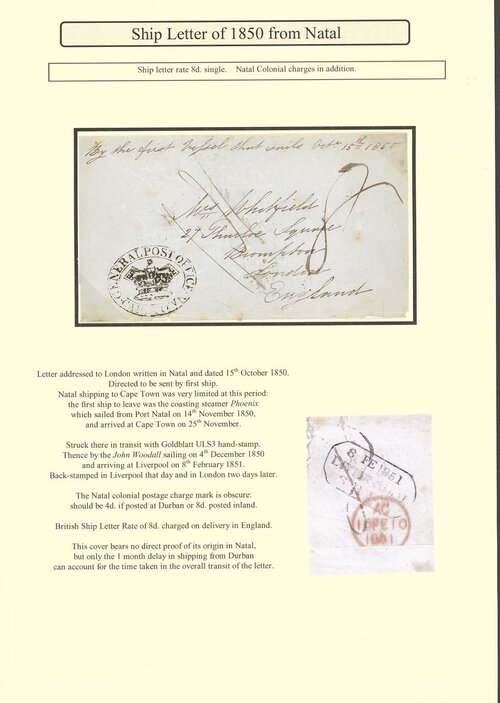 Ship Letter of 1850 from Natal
Ship letter rate 8d. single. Natal Colonial charges in addition.
By the first vessel that sails Octr 15th 1850
8
Mrs Whitfield
27 Thurloe Square
Brompton
London
England
GENERAL POST OFFICE
Letter addressed to London written in Natal and dated 15th October 1850.
Directed to be sent by first ship.
Natal shipping to Cape Town was very limited at this period:
the first ship to leave was the coasting steamer Phoenix
which sailed from Port Natal on 14th November 1850,
and arrived at Cape Town on 25th November.
Struck there in transit with Goldblatt ULS3 hand-stamp.
Thence by the John Woodall sailing on 4th December 1850
and arriving at Liverpool on 8th February 1851.
Back-stamped in Liverpool that day and in London two days later.
The Natal colonial postage charge mark is obscure:
should be 4d. if posted at Durban or 8d. posted inland.
British Ship Letter Rate of 8d. charged on delivery in England.
This cover bears no direct proof of its origin in Natal,
but only the 1 month delay in shipping from Durban
can account for the time taken in the overall transit of the letter.
8 FE 1851
10 FE 10
1851